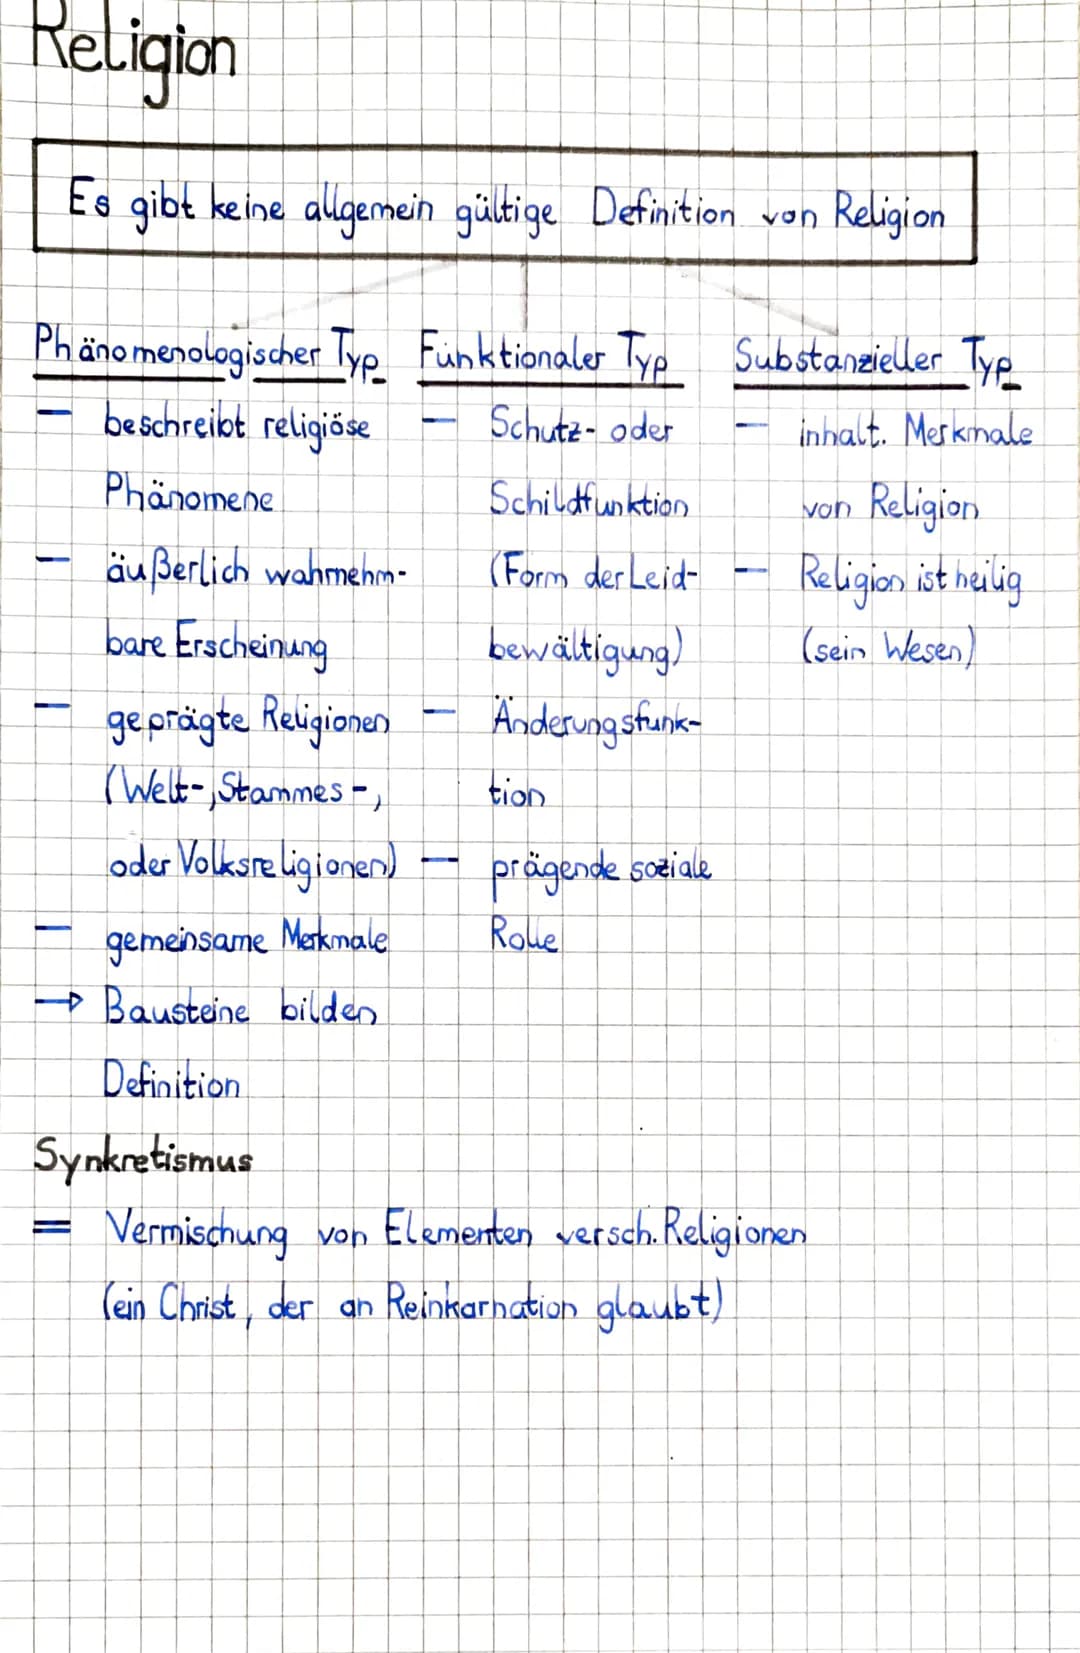 Religion
Es gibt keine allgemein gültige Definition von Religion
Phänomenologischer Typ
- beschreibt religiöse
Phänomene
- äußerlich wahrnehm-
bare Erscheinung
- geprägte Religionen
(Welt-, Stammes-,
oder Volksreligionen)
- gemeinsame Merkmale
→ Bausteine bilden
Definition
Funktionaler Typ
- Schutz- oder
Schildfunktion
(Form der Leid-
bewältigung)
- Änderungsfunk-
tion
- prägende soziale
Rolle
Substanzieller Typ
- inhalt. Merkmale
von Religion
- Religion ist heilig
(sein Wesen)
Synkretismus
= Vermischung von Elementen versch. Religionen
(ein Christ, der an Reinkarnation glaubt)